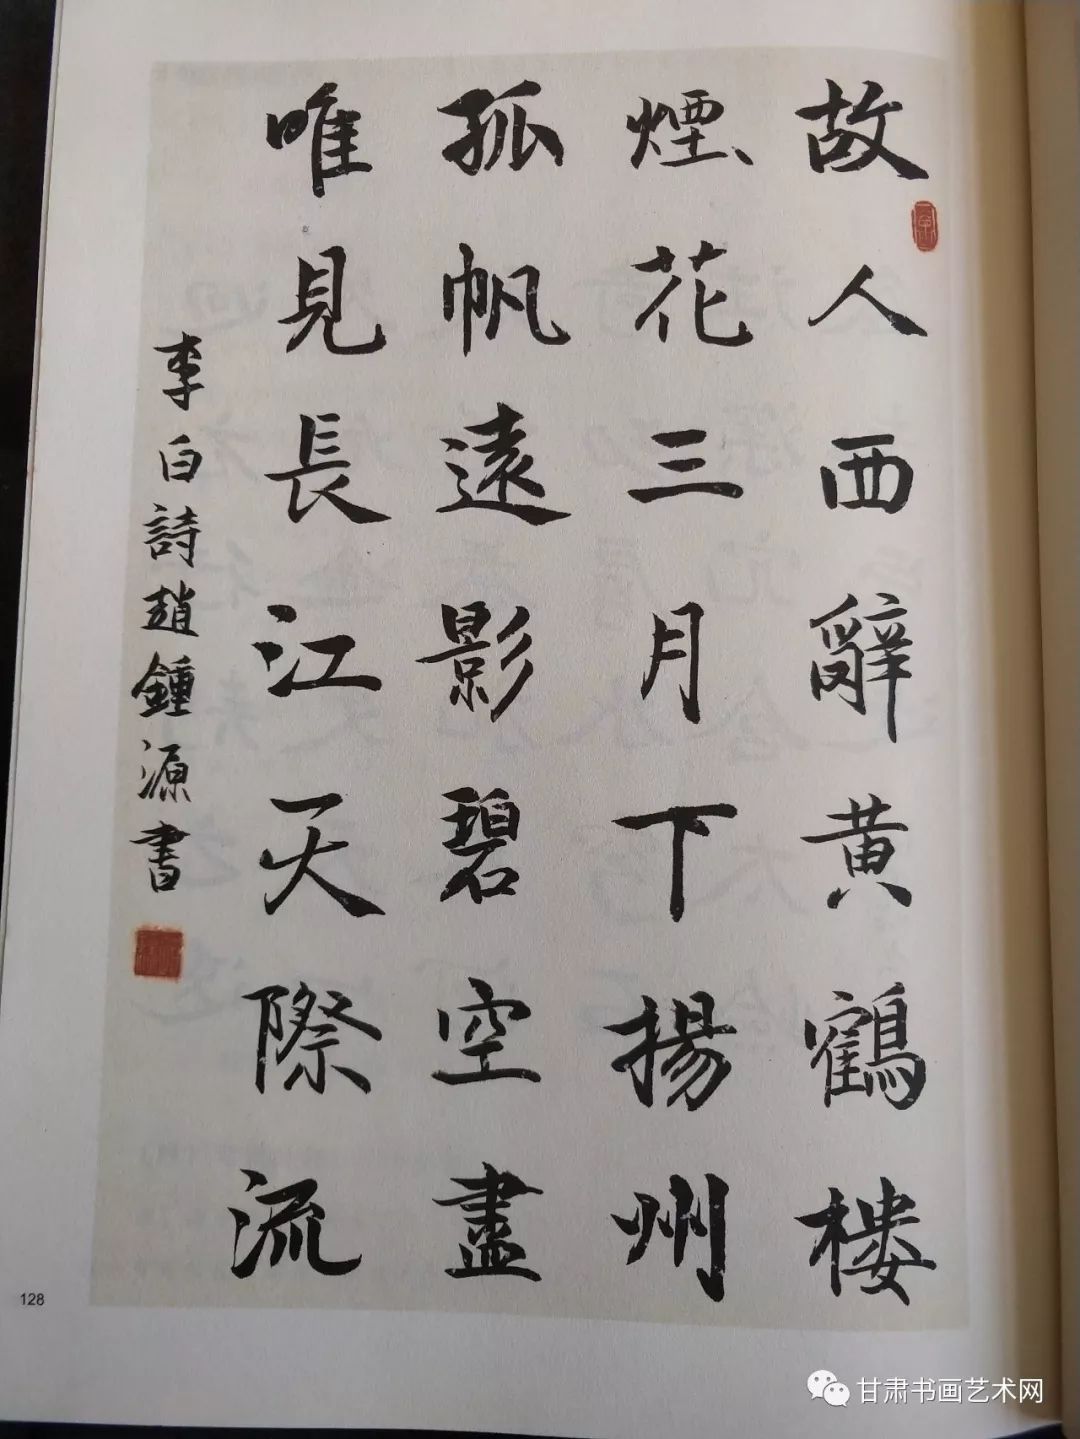 故人西辭黄鶴樓
煙花三月下揚州
孤帆遠影碧空盡
唯見長江天際流
李白詩趙鍾源書
128
甘肃书画艺术网